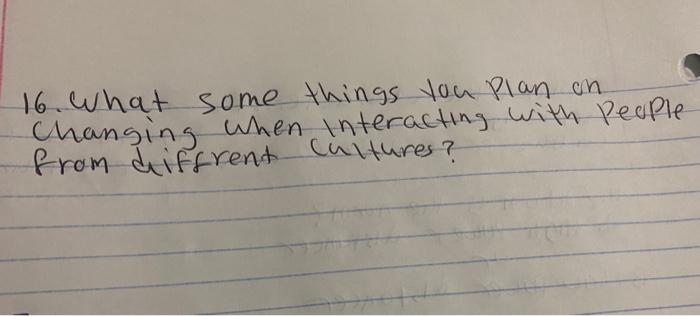 16. What some things you Plan on
Changing when interacting with People
from diffrent Cultures?